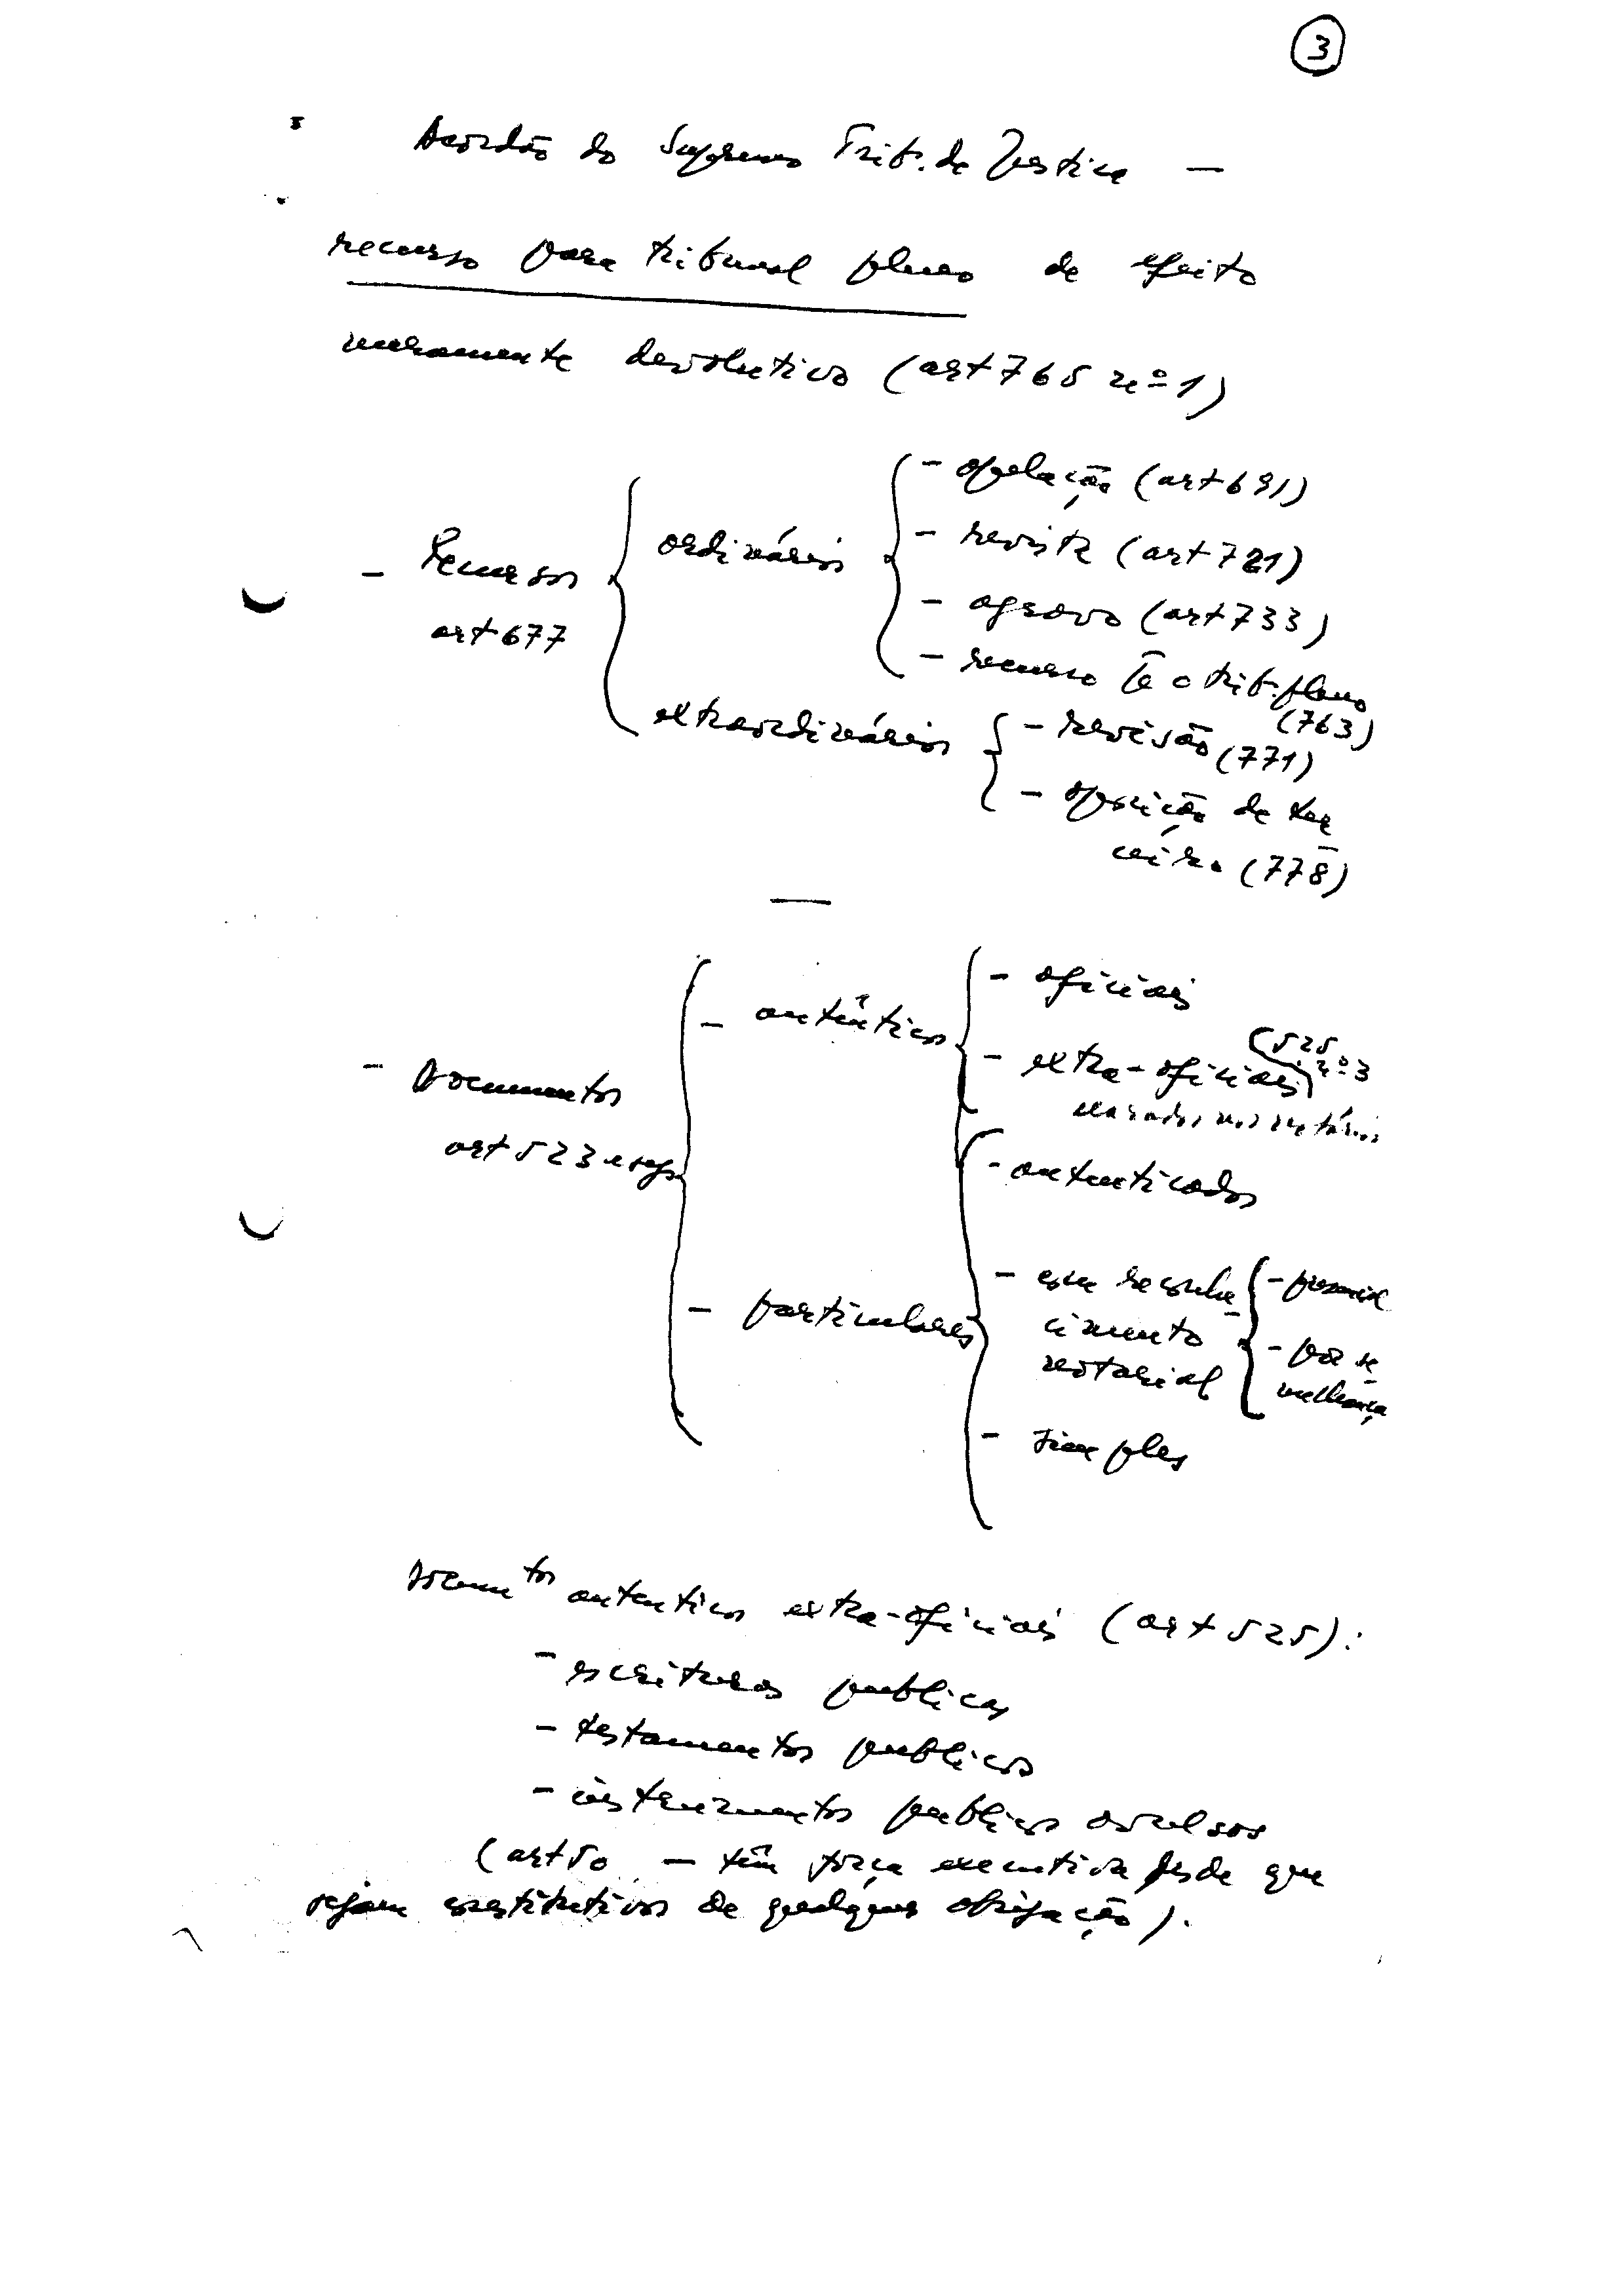 3
Acordão do Supremo Trib. de Justiça —
recurso para tribunal pleno de efeito
meramente devolutivo (art 765 nº 1)
- Recursos
art 677
ordinários
- apelação (art 691)
- revista (art 721)
- agravo (art 733)
- recurso p̄ o trib. pleno
(763)
extraordinários
- revisão (771)
- oposição de ter
ceiro (778)
- Documentos
art 523 e segs
- autênticos
- oficiais
- extra-oficiais (525
nº 3)
exarados nos notários
- particulares
- autenticados
- com reconhe
cimento
notarial
- presencial
- por se
melhança
- simples
Documtos autenticos extra-oficiais (art 525):
- escrituras publicas
- testamentos publicos
- instrumentos publicos avulsos
(art 50 — têm força executiva desde que
sejam constitutivos de qualquer obrigação).